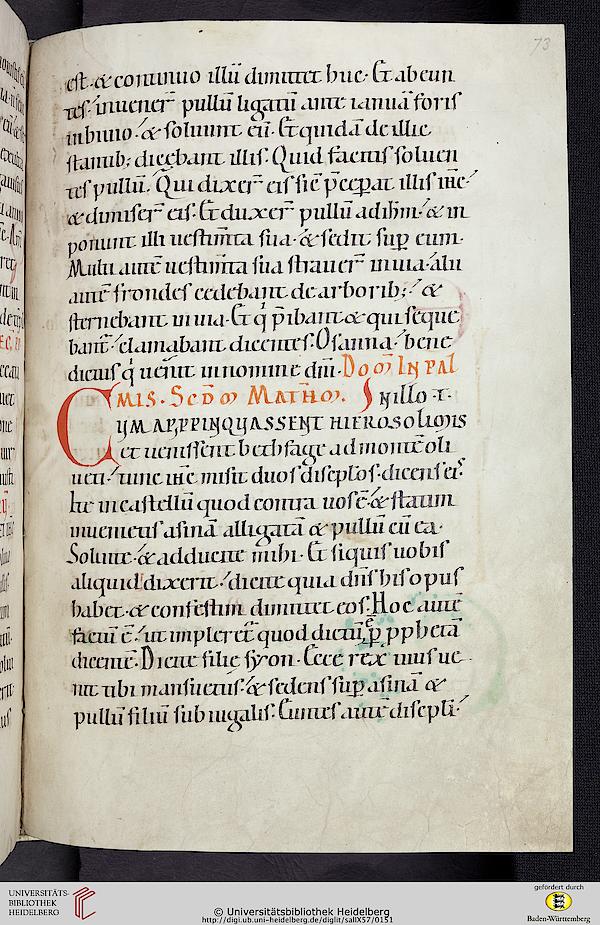 73
est. & continuo illū dimittet huc. Et abeun
tes. inuener̄ pullū ligatū ante ianuā foris
inbiuio. & soluunt eū. Et quidā de illic
stantib; dicebant illis. Quid facitis soluen
tes pullū. Qui dixer̄ eis sic̄ p̄cep̄at illis ihc
& dimiser̄ eis. Et duxer̄ pullū ad ihm̄. & in
ponunt illi uestim̄ta sua. & sedit sup̄ eum.
Multi autē uestim̄ta sua strauer̄ inuia. alii
autē frondes cedebant de arborib;. &
sternebant inuia. Et q̇ p̄ibant & qui seque
bant̄. clamabant dicentes. Osanna. bene
dictus q̇ uenit in nomine dn̄i. Dōm̄ In pal
mis. Scdm̄ Matheū. In illo t.
Cum appinquassent hierosolimis
et uenissent bethfage ad montē oli
ueti. tunc ihc misit duos disc̄plos. dicens eis.
Ite in castellū quod contra uos ē. & statim
inuenietis asinā alligatā & pullū cū ea.
Soluite. & adducite mihi. Et siquis uobis
aliquid dixerit. dicite quia dn̄s his opus
habet. & confestim dimittet eos. Hoc autē
factū ē. ut impleret̄ quod dictū ē p̄ pphetā
dicentē. Dicite filie syon. Ecce rex tuus ue
nit tibi mansuetus. & sedens sup̄ asinā &
pullū filiū subiugalis. Euntes autē discipli.
UNIVERSITÄTS-
BIBLIOTHEK
HEIDELBERG
© Universitätsbibliothek Heidelberg
http://digi.ub.uni-heidelberg.de/diglit/salIX57/0151
gefördert durch
Baden-Württemberg